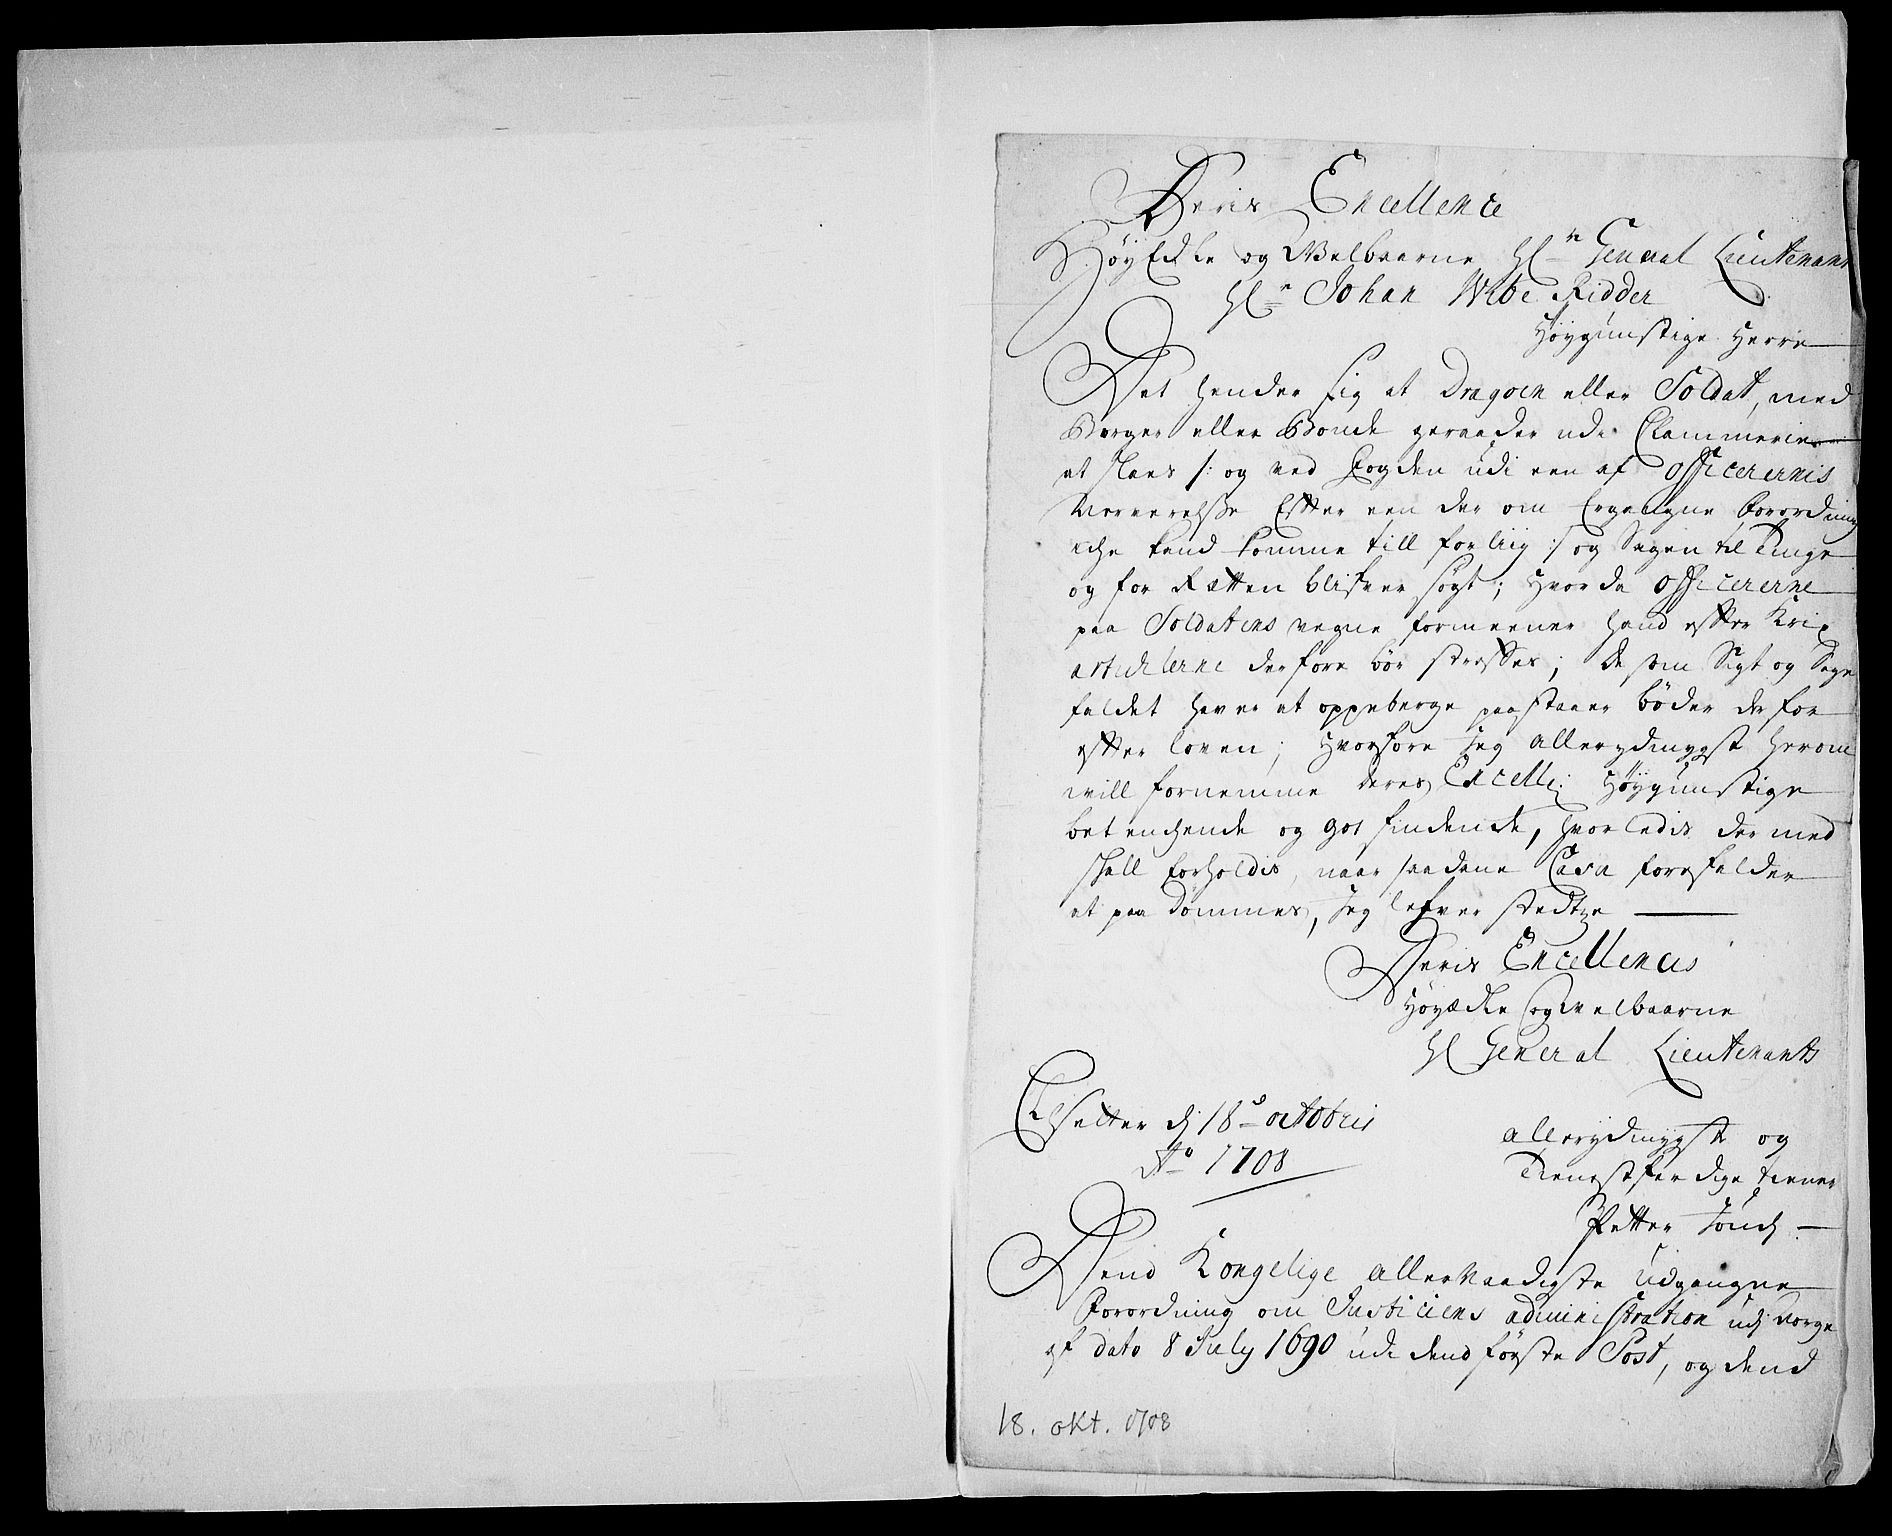 Deris Excellence
HøyEdle og Welbaarne Hl:n General Lieutenant
Hl:r Johan Wibe Ridder
Høygunstige Herre
Det hender sig at Dragoen eller Soldat, med
Borger eller Bonde geraader udi Clammerie
at slaes /: og ved fogden udi een af officerernis
Nerverelsse Efter een der om Ergangne forordning
iche kand komme till forliig :/ og Sagen til Tinge
og for Retten blifver søgt; hvor da officererne
paa Soldatens vegne formeener hand efter Krix
articlerne derfore bør straffes; de som Sigt og Sage
faldet haver at oppeberge paastaaer bøder derfor
efter loven; hvorfore Jeg allerydmygst herom
will fornemme deres Excell: Høygunstige
betenchende og got findende, hvorledis der med
skall forholdis, naar saadane Casu forefalder
at paa dømmes, Jeg lefver stedtze
Deris Excellences
Høyædle og welbaarne
Hl General Lieutenants
dj 18 octobris
Ao 1708
allerydmygst og
Tienestferdige tiener
Petter
Dend Kongelige allernaadigste Udgangne
forordning om Justiciens administration udj Norge
af dato 8 July 1690 udi dend første Post, og dend
18. okt. 1708